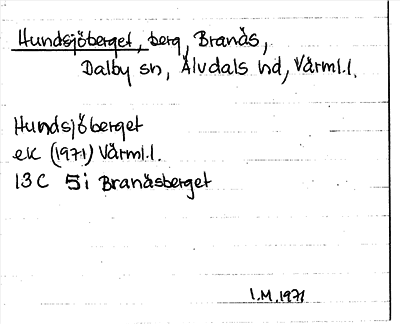 Hundsjöberget, berg, Branäs,
Dalby sn, Älvdals hd, Värml.l.
Hundsjöberget
ek (1971) Värml.l.
13C 5i Branäsberget
I.M. 1971